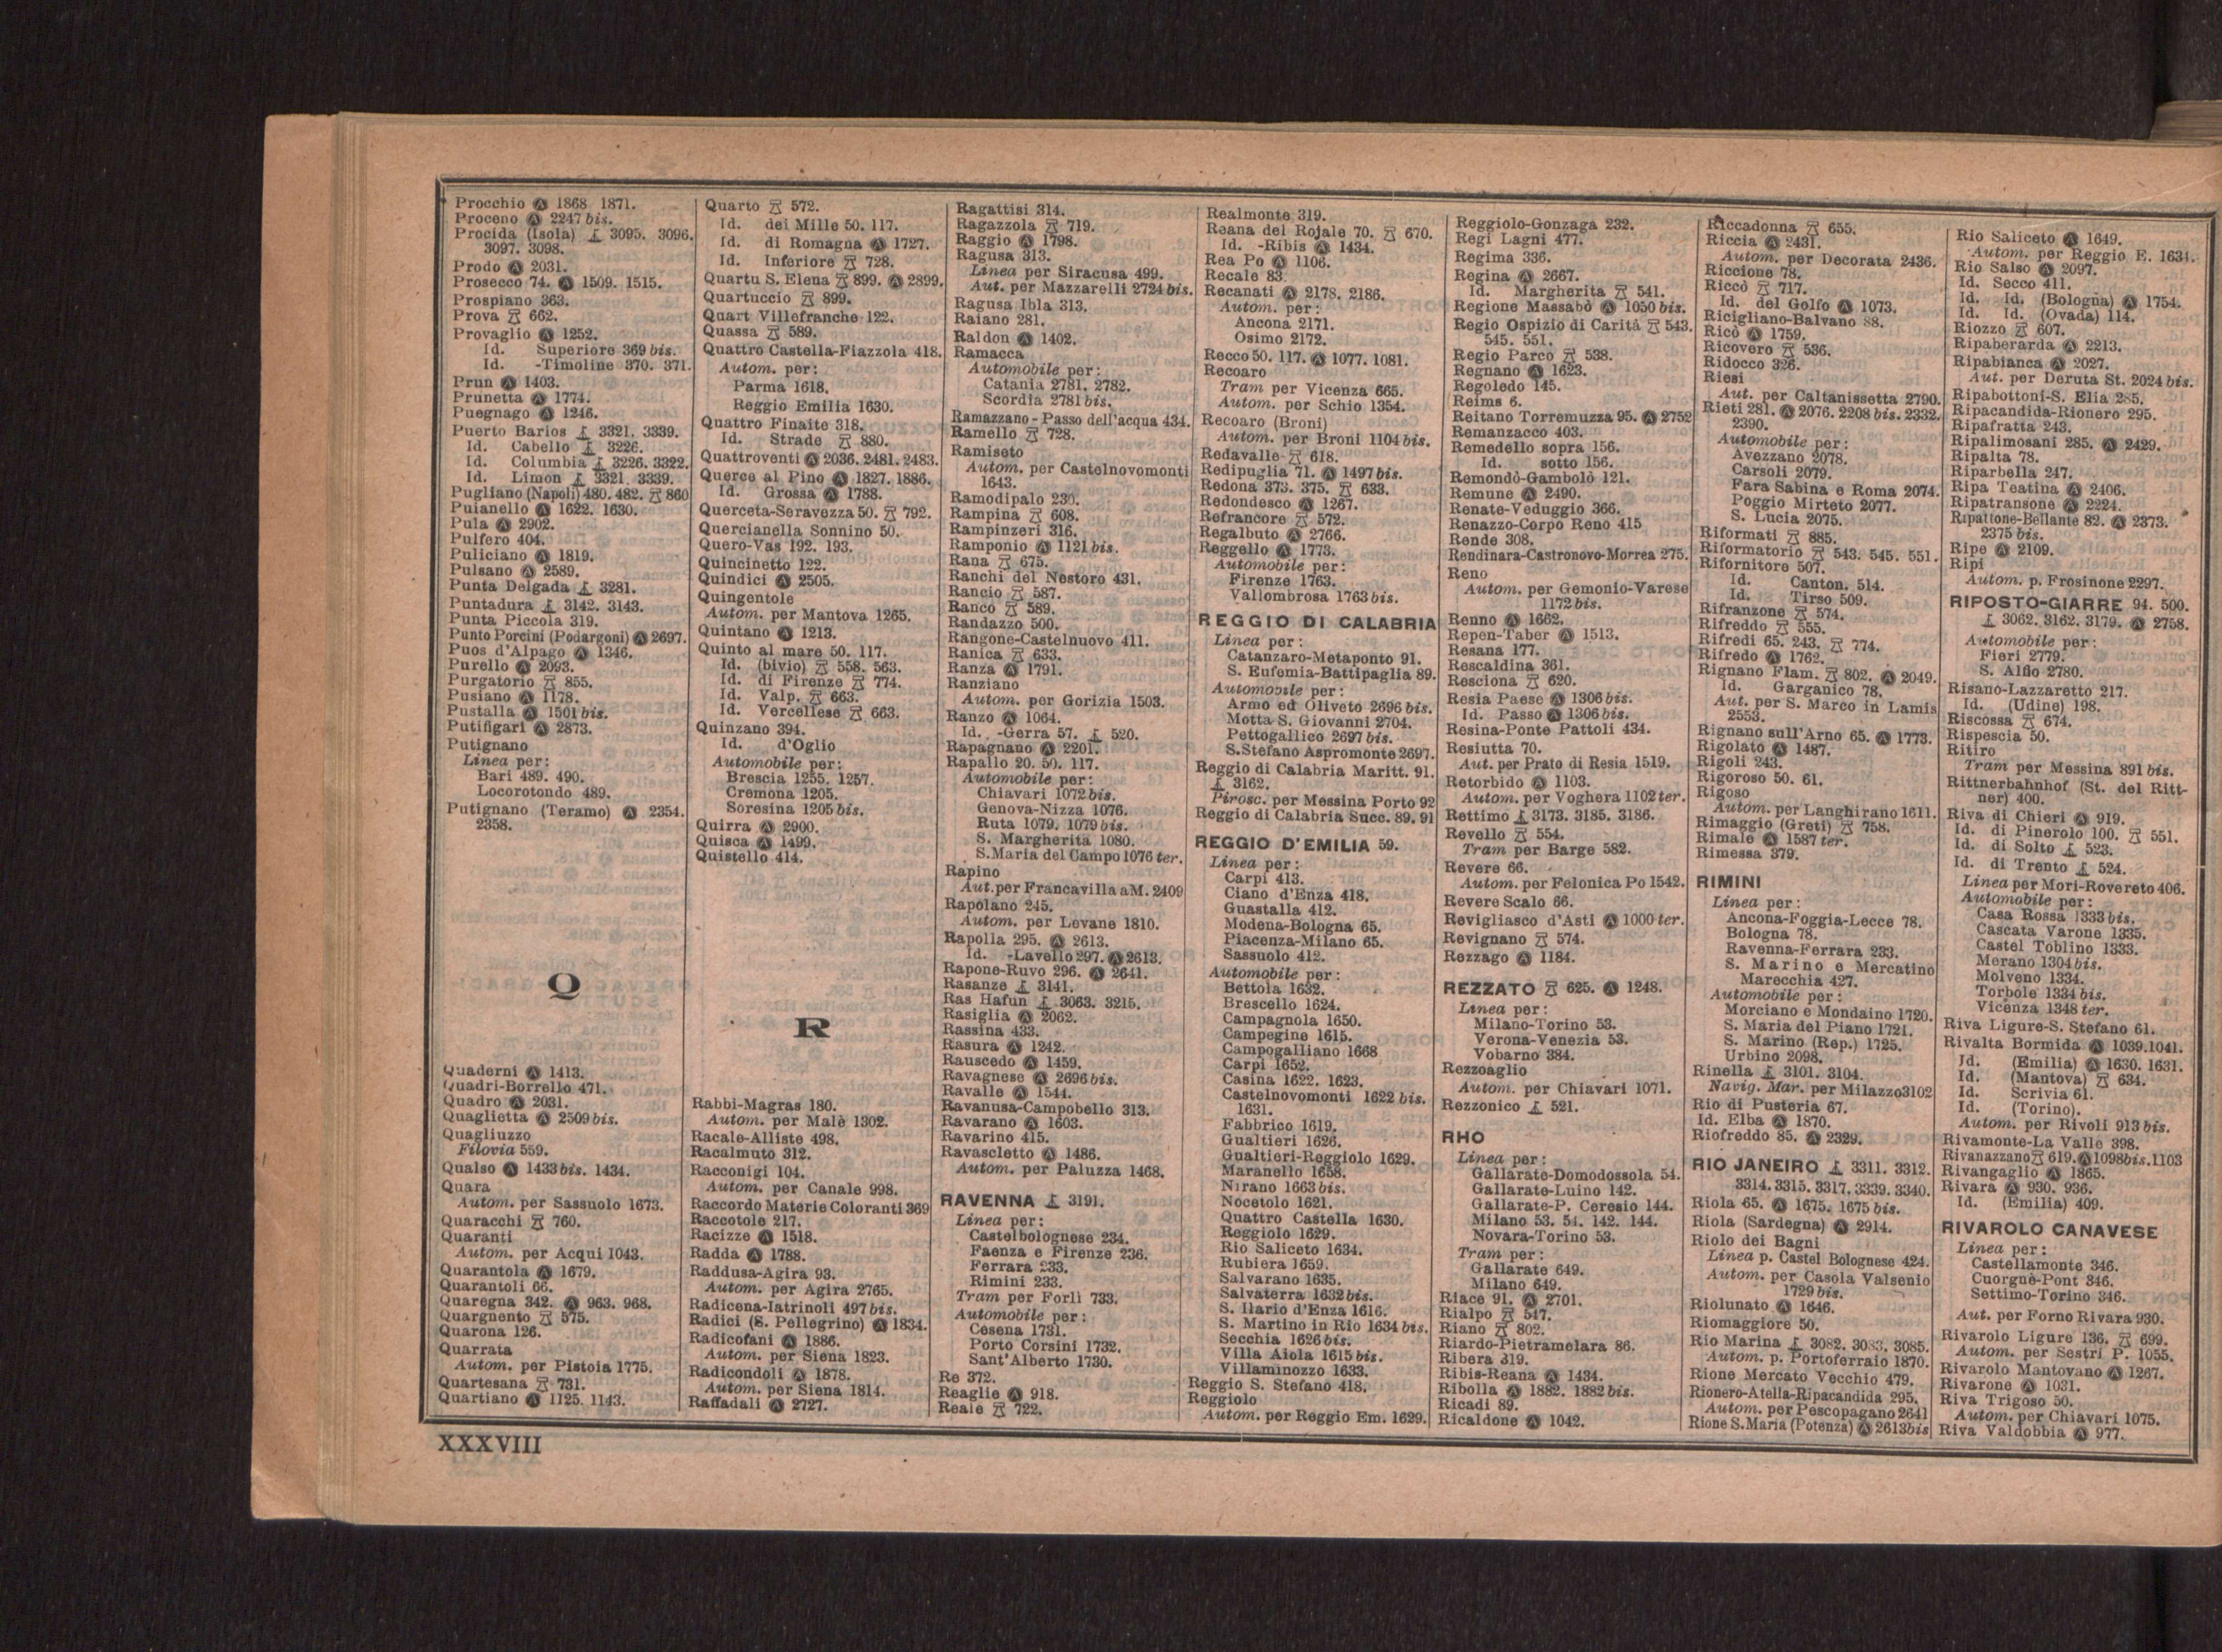 Procchio Ⓐ 1868 1871.
Proceno Ⓐ 2247 bis.
Procida (Isola) ⚓ 3095. 3096.
3097. 3098.
Prodo Ⓐ 2031.
Prosecco 74. Ⓐ 1509. 1515.
Prospiano 363.
Prova 662.
Provaglio Ⓐ 1252.
Id. Superiore 369 bis.
Id. -Timoline 370. 371.
Prun Ⓐ 1403.
Prunetta Ⓐ 1774.
Puegnago Ⓐ 1246.
Puerto Barios ⚓ 3321. 3339.
Id. Cabello ⚓ 3226.
Id. Columbia ⚓ 3226. 3322.
Id. Limon ⚓ 3321. 3339.
Pugliano (Napoli) 480. 482. 860
Puianello Ⓐ 1622. 1630.
Pula Ⓐ 2902.
Pulfero 404.
Puliciano Ⓐ 1819.
Pulsano Ⓐ 2589.
Punta Delgada ⚓ 3281.
Puntadura ⚓ 3142. 3143.
Punta Piccola 319.
Punto Porcini (Podargoni) Ⓐ 2697.
Puos d'Alpago Ⓐ 1346.
Purello Ⓐ 2093.
Purgatorio 855.
Pusiano Ⓐ 1178.
Pustalla Ⓐ 1501 bis.
Putifigari Ⓐ 2873.
Putignano
Linea per:
Bari 489. 490.
Locorotondo 489.
Putignano (Teramo) Ⓐ 2354.
2358.
Q
Quaderni Ⓐ 1413.
Quadri-Borrello 471.
Quadro Ⓐ 2031.
Quaglietta Ⓐ 2509 bis.
Quagliuzzo
Filovia 559.
Qualso Ⓐ 1433 bis. 1434.
Quara
Autom. per Sassuolo 1673.
Quaracchi 760.
Quaranti
Autom. per Acqui 1043.
Quarantola Ⓐ 1679.
Quarantoli 66.
Quaregna 342. Ⓐ 963. 968.
Quargnento 575.
Quarona 126.
Quarrata
Autom. per Pistoia 1775.
Quartesana 731.
Quartiano Ⓐ 1125. 1143.
Quarto 572.
Id. dei Mille 50. 117.
Id. di Romagna Ⓐ 1727.
Id. Inferiore 728.
Quartu S. Elena 899. Ⓐ 2899.
Quartuccio 899.
Quart Villefranche 122.
Quassa 589.
Quattro Castella-Fiazzola 418.
Autom. per:
Parma 1618.
Reggio Emilia 1630.
Quattro Finaite 318.
Id. Strade 880.
Quattroventi Ⓐ 2036. 2481. 2483.
Querce al Pino Ⓐ 1827. 1886.
Id. Grossa Ⓐ 1788.
Querceta-Seravezza 50. 792.
Quercianella Sonnino 50.
Quero-Vas 192. 193.
Quincinetto 122.
Quindici Ⓐ 2505.
Quingentole
Autom. per Mantova 1265.
Quintano Ⓐ 1213.
Quinto al mare 50. 117.
Id. (bivio) 558. 563.
Id. di Firenze 774.
Id. Valp. 663.
Id. Vercellese 663.
Quinzano 394.
Id. d'Oglio
Automobile per:
Brescia 1255. 1257.
Cremona 1205.
Soresina 1205 bis.
Quirra Ⓐ 2900.
Quisca Ⓐ 1499.
Quistello 414.
R
Rabbi-Magras 180.
Autom. per Malè 1302.
Racale-Alliste 498.
Racalmuto 312.
Racconigi 104.
Autom. per Canale 998.
Raccordo Materie Coloranti 369
Raccotole 217.
Racizze Ⓐ 1518.
Radda Ⓐ 1788.
Raddusa-Agira 93.
Autom. per Agira 2765.
Radicena-Iatrinoli 497 bis.
Radici (S. Pellegrino) Ⓐ 1834.
Radicofani Ⓐ 1886.
Autom. per Siena 1823.
Radicondoli Ⓐ 1878.
Autom. per Siena 1814.
Raffadali Ⓐ 2727.
Ragattisi 314.
Ragazzola 719.
Raggio Ⓐ 1798.
Ragusa 313.
Linea per Siracusa 499.
Aut. per Mazzarelli 2724 bis.
Ragusa Ibla 313.
Raiano 281.
Raldon Ⓐ 1402.
Ramacca
Automobile per:
Catania 2781. 2782.
Scordia 2781 bis.
Ramazzano - Passo dell'acqua 434.
Ramello 728.
Ramiseto
Autom. per Castelnovomonti
1643.
Ramodipalo 230.
Rampina 608.
Rampinzeri 316.
Ramponio Ⓐ 1121 bis.
Rana 675.
Ranchi del Nestoro 431.
Rancio 587.
Ranco 589.
Randazzo 500.
Rangone-Castelnuovo 411.
Ranica 633.
Ranza Ⓐ 1791.
Ranziano
Autom. per Gorizia 1503.
Ranzo Ⓐ 1064.
Id. -Gerra 57. ⚓ 520.
Rapagnano Ⓐ 2201.
Rapallo 20. 50. 117.
Automobile per:
Chiavari 1072 bis.
Genova-Nizza 1076.
Ruta 1079. 1079 bis.
S. Margherita 1080.
S. Maria del Campo 1076 ter.
Rapino
Aut. per Francavilla a M. 2409
Rapolano 245.
Autom. per Levane 1810.
Rapolla 295. Ⓐ 2613.
Id. -Lavello 297. Ⓐ 2613.
Rapone-Ruvo 296. Ⓐ 2641.
Rasanze ⚓ 3141.
Ras Hafun ⚓ 3063. 3215.
Rasiglia Ⓐ 2062.
Rassina 433.
Rasura Ⓐ 1242.
Rauscedo Ⓐ 1459.
Ravagnese Ⓐ 2696 bis.
Ravalle Ⓐ 1544.
Ravanusa-Campobello 313.
Ravarano Ⓐ 1603.
Ravarino 415.
Ravascletto Ⓐ 1486.
Autom. per Paluzza 1468.
RAVENNA ⚓ 3191.
Linea per:
Castelbolognese 234.
Faenza e Firenze 236.
Ferrara 233.
Rimini 233.
Tram per Forlì 733.
Automobile per:
Cesena 1731.
Porto Corsini 1732.
Sant'Alberto 1730.
Re 372.
Reaglie Ⓐ 918.
Reale 722.
Realmonte 319.
Reana del Rojale 70. 670.
Id. -Ribis Ⓐ 1434.
Rea Po Ⓐ 1106.
Recale 83.
Recanati Ⓐ 2178. 2186.
Autom. per:
Ancona 2171.
Osimo 2172.
Recco 50. 117. Ⓐ 1077. 1081.
Recoaro
Tram per Vicenza 665.
Autom. per Schio 1354.
Recoaro (Broni)
Autom. per Broni 1104 bis.
Redavalle 618.
Redipuglia 71. Ⓐ 1497 bis.
Redona 373. 375. 633.
Redondesco Ⓐ 1267.
Refrancore 572.
Regalbuto Ⓐ 2766.
Reggello Ⓐ 1773.
Automobile per:
Firenze 1763.
Vallombrosa 1763 bis.
REGGIO DI CALABRIA
Linea per:
Catanzaro-Metaponto 91.
S. Eufemia-Battipaglia 89.
Automobile per:
Armo ed Oliveto 2696 bis.
Motta S. Giovanni 2704.
Pettogallico 2697 bis.
S. Stefano Aspromonte 2697.
Reggio di Calabria Maritt. 91.
⚓ 3162.
Pirosc. per Messina Porto 92
Reggio di Calabria Succ. 89. 91
REGGIO D'EMILIA 59.
Linea per:
Carpi 413.
Ciano d'Enza 418.
Guastalla 412.
Modena-Bologna 65.
Piacenza-Milano 65.
Sassuolo 412.
Automobile per:
Bettola 1632.
Brescello 1624.
Campagnola 1650.
Campegine 1615.
Campogalliano 1668
Carpi 1652.
Casina 1622. 1623.
Castelnovomonti 1622 bis.
1631.
Fabbrico 1619.
Gualtieri 1626.
Gualtieri-Reggiolo 1629.
Maranello 1658.
Nirano 1663 bis.
Nocetolo 1621.
Quattro Castella 1630.
Reggiolo 1629.
Rio Saliceto 1634.
Rubiera 1659.
Salvarano 1635.
Salvaterra 1632 bis.
S. Ilario d'Enza 1616.
S. Martino in Rio 1634 bis.
Secchia 1626 bis.
Villa Aiola 1615 bis.
Villaminozzo 1633.
Reggio S. Stefano 418.
Reggiolo
Autom. per Reggio Em. 1629.
Reggiolo-Gonzaga 232.
Regi Lagni 477.
Regima 336.
Regina Ⓐ 2667.
Id. Margherita 541.
Regione Massabò Ⓐ 1050 bis.
Regio Ospizio di Carità 543.
545. 551.
Regio Parco 538.
Regnano Ⓐ 1623.
Regoledo 145.
Reims 6.
Reitano Torremuzza 95. Ⓐ 2752
Remanzacco 403.
Remedello sopra 156.
Id. sotto 156.
Remondò-Gambolò 121.
Remune Ⓐ 2490.
Renate-Veduggio 366.
Renazzo-Corpo Reno 415
Rende 308.
Rendinara-Castronovo-Morrea 275.
Reno
Autom. per Gemonio-Varese
1172 bis.
Renno Ⓐ 1662.
Repen-Taber Ⓐ 1513.
Resana 177.
Rescaldina 361.
Resciona 620.
Resia Paese Ⓐ 1306 bis.
Id. Passo Ⓐ 1306 bis.
Resina-Ponte Pattoli 434.
Resiutta 70.
Aut. per Prato di Resia 1519.
Retorbido Ⓐ 1103.
Autom. per Voghera 1102 ter.
Rettimo ⚓ 3173. 3185. 3186.
Revello 554.
Tram per Barge 582.
Revere 66.
Autom. per Felonica Po 1542.
Revere Scalo 66.
Revigliasco d'Asti Ⓐ 1000 ter.
Revignano 574.
Rezzago Ⓐ 1184.
REZZATO 625. Ⓐ 1248.
Linea per:
Milano-Torino 53.
Verona-Venezia 53.
Vobarno 384.
Rezzoaglio
Autom. per Chiavari 1071.
Rezzonico ⚓ 521.
RHO
Linea per:
Gallarate-Domodossola 54.
Gallarate-Luino 142.
Gallarate-P. Ceresio 144.
Milano 53. 54. 142. 144.
Novara-Torino 53.
Tram per:
Gallarate 649.
Milano 649.
Riace 91. Ⓐ 2701.
Rialpo 547.
Riano 802.
Riardo-Pietramelara 86.
Ribera 319.
Ribis-Reana Ⓐ 1434.
Ribolla Ⓐ 1882. 1882 bis.
Ricadi 89.
Ricaldone Ⓐ 1042.
Riccadonna 655.
Riccia Ⓐ 2431.
Autom. per Decorata 2436.
Riccione 78.
Riccò 717.
Id. del Golfo Ⓐ 1073.
Ricigliano-Balvano 88.
Ricò Ⓐ 1759.
Ricovero 536.
Ridocco 326.
Riesi
Aut. per Caltanissetta 2790.
Rieti 281. Ⓐ 2076. 2208 bis. 2332.
2390.
Automobile per:
Avezzano 2078.
Carsoli 2079.
Fara Sabina e Roma 2074.
Poggio Mirteto 2077.
S. Lucia 2075.
Riformati 885.
Riformatorio 543. 545. 551.
Rifornitore 507.
Id. Canton. 514.
Id. Tirso 509.
Rifranzone 574.
Rifreddo 555.
Rifredi 65. 243. 774.
Rifredo Ⓐ 1762.
Rignano Flam. 802. Ⓐ 2049.
Id. Garganico 78.
Aut. per S. Marco in Lamis
2553.
Rignano sull'Arno 65. Ⓐ 1773.
Rigolato Ⓐ 1487.
Rigoli 243.
Rigoroso 50. 61.
Rigoso
Autom. per Langhirano 1611.
Rimaggio (Greti) 758.
Rimale Ⓐ 1587 ter.
Rimessa 379.
RIMINI
Linea per:
Ancona-Foggia-Lecce 78.
Bologna 78.
Ravenna-Ferrara 233.
S. Marino e Mercatino
Marecchia 427.
Automobile per:
Morciano e Mondaino 1720.
S. Maria del Piano 1721.
S. Marino (Rep.) 1725.
Urbino 2098.
Rinella ⚓ 3101. 3104.
Navig. Mar. per Milazzo 3102
Rio di Pusteria 67.
Id. Elba Ⓐ 1870.
Riofreddo 85. Ⓐ 2329.
RIO JANEIRO ⚓ 3311. 3312.
3314. 3315. 3317. 3339. 3340.
Riola 65. Ⓐ 1675. 1675 bis.
Riola (Sardegna) Ⓐ 2914.
Riolo dei Bagni
Linea p. Castel Bolognese 424.
Autom. per Casola Valsenio
1729 bis.
Riolunato Ⓐ 1646.
Riomaggiore 50.
Rio Marina ⚓ 3082. 3083. 3085.
Autom. p. Portoferraio 1870.
Rione Mercato Vecchio 479.
Rionero-Atella-Ripacandida 295.
Autom. per Pescopagano 2641
Rione S. Maria (Potenza) Ⓐ 2613bis
Rio Saliceto Ⓐ 1649.
Autom. per Reggio E. 1634.
Rio Salso Ⓐ 2097.
Id. Secco 411.
Id. Id. (Bologna) Ⓐ 1754.
Id. Id. (Ovada) 114.
Riozzo 607.
Ripaberarda Ⓐ 2213.
Ripabianca Ⓐ 2027.
Aut. per Deruta St. 2024 bis.
Ripabottoni-S. Elia 285.
Ripacandida-Rionero 295.
Ripafratta 243.
Ripalimosani 285. Ⓐ 2429.
Ripalta 78.
Riparbella 247.
Ripa Teatina Ⓐ 2406.
Ripatransone Ⓐ 2224.
Ripattone-Bellante 82. Ⓐ 2373.
2375 bis.
Ripe Ⓐ 2109.
Ripi
Autom. p. Frosinone 2297.
RIPOSTO-GIARRE 94. 500.
⚓ 3062. 3162. 3179. Ⓐ 2758.
Automobile per:
Fieri 2779.
S. Alfio 2780.
Risano-Lazzaretto 217.
Id. (Udine) 198.
Riscossa 674.
Rispescia 50.
Ritiro
Tram per Messina 891 bis.
Rittnerbahnhof (St. del Ritt-
ner) 400.
Riva di Chieri Ⓐ 919.
Id. di Pinerolo 100. 551.
Id. di Solto ⚓ 523.
Id. di Trento ⚓ 524.
Linea per Mori-Rovereto 406.
Automobile per:
Casa Rossa 1333 bis.
Cascata Varone 1335.
Castel Toblino 1333.
Merano 1304 bis.
Molveno 1334.
Torbole 1334 bis.
Vicenza 1348 ter.
Riva Ligure-S. Stefano 61.
Rivalta Bormida Ⓐ 1039. 1041.
Id. (Emilia) Ⓐ 1630. 1631.
Id. (Mantova) 634.
Id. Scrivia 61.
Id. (Torino).
Autom. per Rivoli 913 bis.
Rivamonte-La Valle 398.
Rivanazzano 619. Ⓐ 1098bis. 1103
Rivangaglio Ⓐ 1865.
Rivara Ⓐ 930. 936.
Id. (Emilia) 409.
RIVAROLO CANAVESE
Linea per:
Castellamonte 346.
Cuorgnè-Pont 346.
Settimo-Torino 346.
Aut. per Forno Rivara 930.
Rivarolo Ligure 136. 699.
Autom. per Sestri P. 1055.
Rivarolo Mantovano Ⓐ 1267.
Rivarone Ⓐ 1031.
Riva Trigoso 50.
Autom. per Chiavari 1075.
Riva Valdobbia Ⓐ 977.
XXXVIII